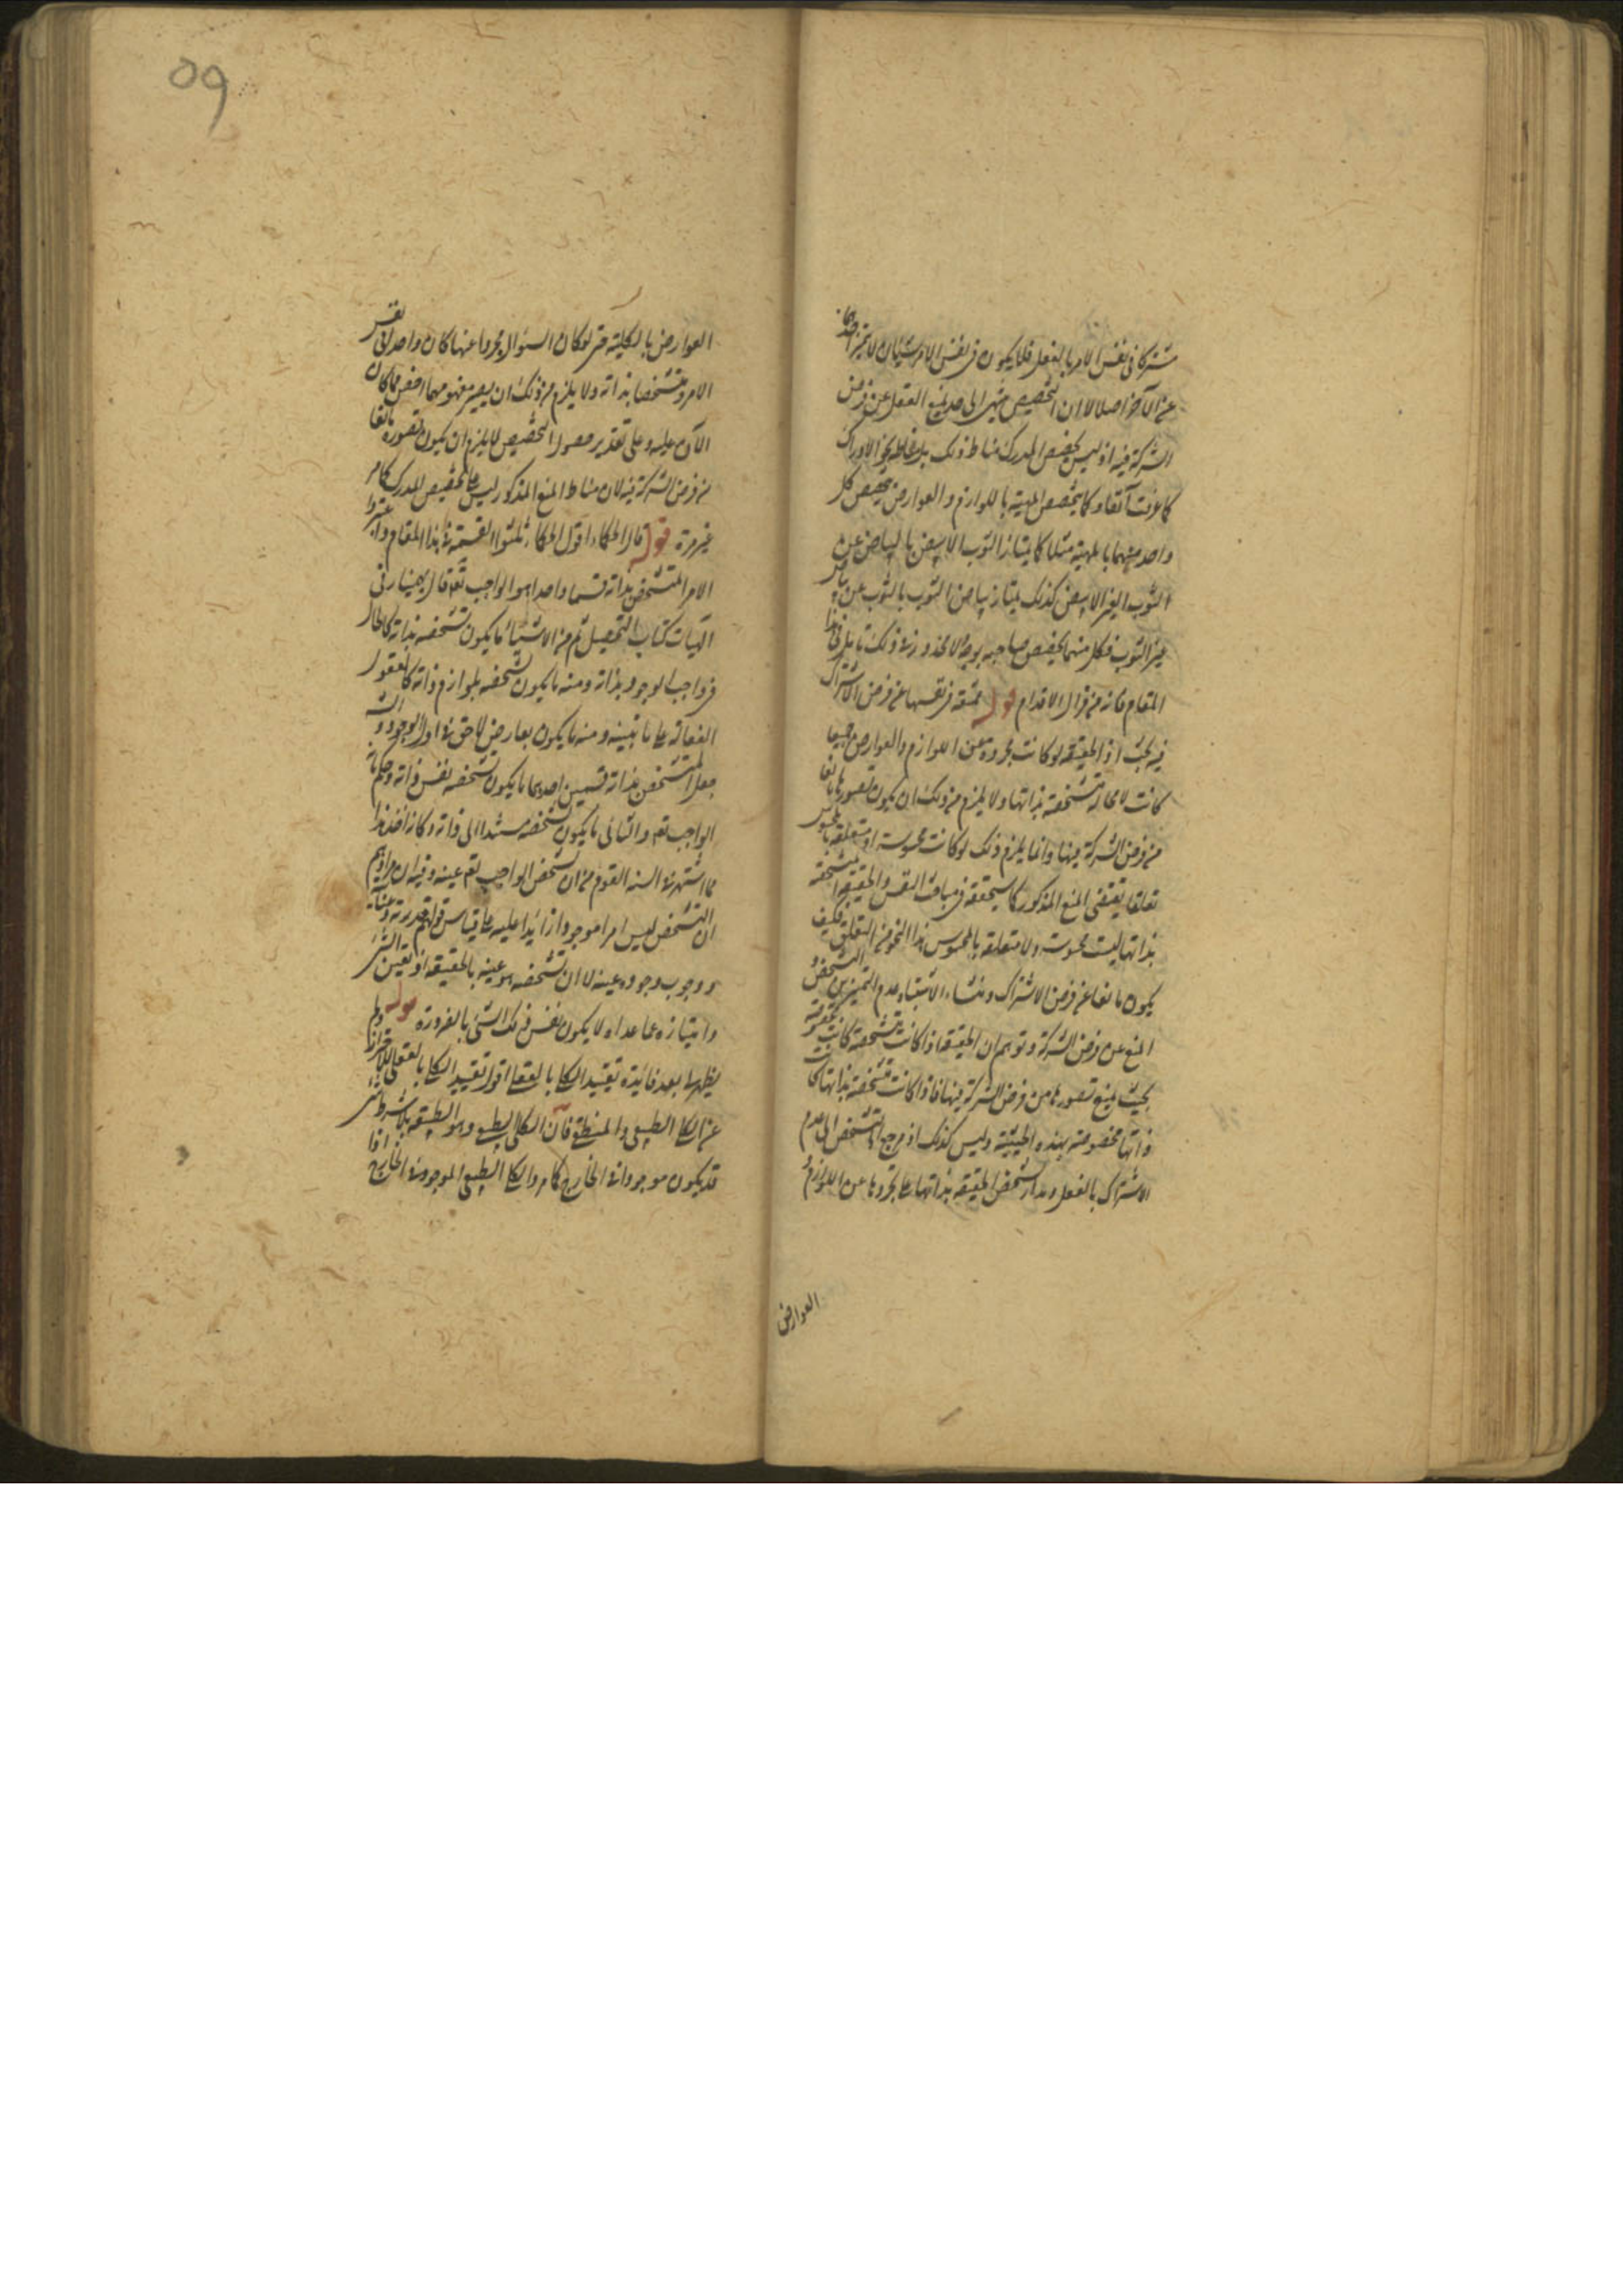 مشتركا فى نفس الامر بالفعل فلا يكون فى نفس الامر شيئان لا يتميز احدهما
عن الآخر اصلا لا ان التخصيص ينتهى الى حد يمنع العقل عن فرض
الشركة فيه اذ ليس تخصيص المدرك مناط ذلك بل مناطه نحو الادراك
كما عرفت آنفا وكما يتخصص المهية باللوازم والعوارض يتخصص كل
واحد منهما بالمهية مثلا كما يمتاز الثوب الابيض بالبياض عن
الثوب الغير الابيض كذلك يمتاز بياض الثوب بالثوب عن بياض
غير الثوب فكل منهما يخصص صاحبه بوجه لا محذور فى ذلك تأمل فى هذا
المقام فانه من مزال الاقدام قوله ممتنعة فى نفسها عن فرض الاشتراك
فيه بحث اذ الحقيقة لو كانت مجردة عن اللوازم والعوارض جميعا
كانت لا محالة متشخصة بذاتها ولا يلزم من ذلك ان يكون تصورها مانعا
من فرض الشركة فيها وانما يلزم ذلك لو كانت محسوسة او متعلقة بالمحسوس
تعلقا يقتضى المنع المذكور كما سيحققه فى مباحث النفس والحقيقة المتشخصة
بذاتها ليست محسوسة ولا متعلقة بالمحسوس هذا النحو من التعلق فكيف
يكون مانعا عن فرض الاشتراك ومنشاء الاشتباه عدم التميز بين التشخص و
المنع عن فرض الشركة وتوهم ان الحقيقة اذا كانت متشخصة كانت مخصوصة
بحيث يمنع تصورها من فرض الشركة فيها فاذا كانت متشخصة بذاتها كانت
ذاتها مخصوصة بهذه الحيثية وليس كذلك اذ مرجع التشخص الى عدم
الاشتراك بالفعل ومدار تشخص الحقيقة بذاتها على تجردها عن اللوازم و
العوارض
09
العوارض بالكلية حتى لو كان السؤال مجردا عنها كان واحدا فى نفس
الامر ومتشخصا بذاته ولا يلزم من ذلك ان يصير مفهومها اخص مما كان
الآن عليه وعلى تقدير حصول التخصيص لا يلزم ان يكون تصوره مانعا
من فرض الشركة فيه لان مناط المنع المذكور ليس على تخصيص المدرك كما مر
غير مرة قوله قال الحكماء اقول الحكماء ثلثوا القسمة فى هذا المقام واعتبروا
الامر المتشخص بذاته قسما واحدا هو الواجب تعم قال بهمنيار فى
الهيات كتاب التحصيل ثم من الاشياء ما يكون تشخصه بذاته كالحال
فى واجب الوجود بذاته ومنه ما يكون تشخصه بلوازم ذاته كالعقول
الفعالة على ما نبينه ومنه ما يكون بعارض لاحق فى اول الوجود و
جعل المتشخص بذاته قسمين احدهما ما يكون تشخصه نفس ذاته وحكم بانه
الواجب تعم والثانى ما يكون تشخصه مستندا الى ذاته وكانه اخذ هذا
مما اشتهر فى السنة القوم من ان تشخص الواجب تعم عينه وفيه ان مرادهم
ان التشخص ليس امرا موجودا زائدا عليه على قياس قولهم قدرته
ووجوب وجوده عينه لا ان تشخصه هو عينه بالحقيقة اذ تعين الشئ
وامتيازه عما عداه لا يكون نفس ذلك الشئ بالضرورة قوله ولم
يظهر لى بعد فايدة تقييد الكلى بالعقلى اقول تقييد الكلى بالعقلى للاحتراز
عن الكلى الطبيعى والمنطقى فان الكلى الطبيعى وهو الطبيعة بلا شرط شئ
قد يكون موجودا فى الخارج كما مر والكلى الطبيعى الموجود فى الخارج اذا